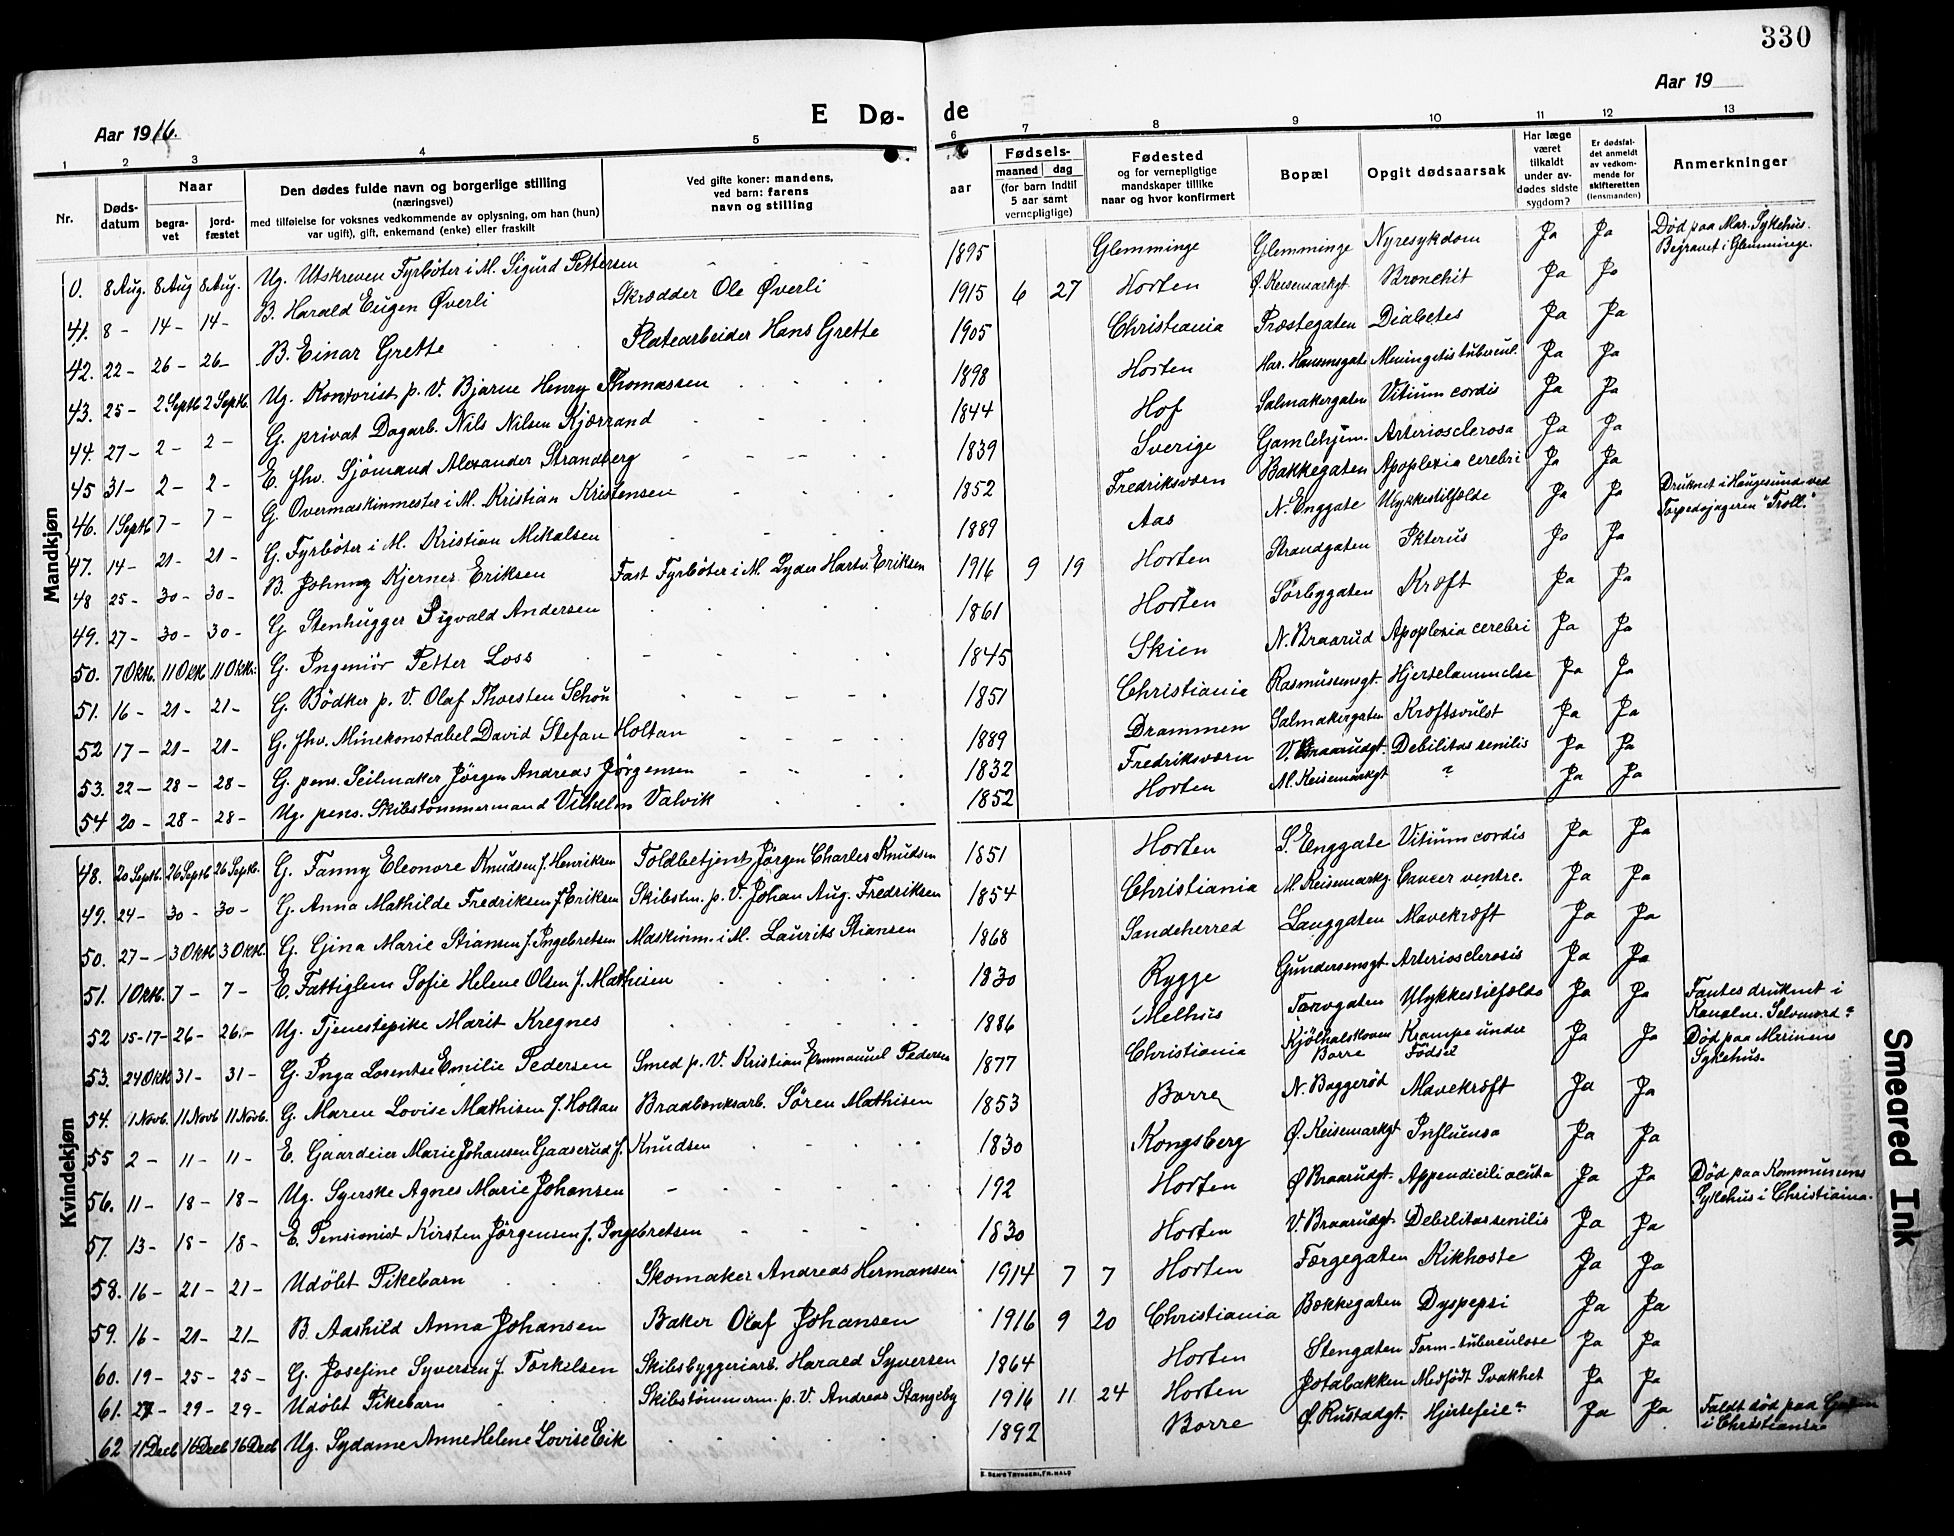 330
Aar 1916.
E Dø-
de
Aar 19
1 2 3 4 5 6 7 8 9 10 11 12 13
Nr.
Døds-
datum
Naar
begra-
vet
jord-
fæstet
Den dødes fulde navn og borgerlige stilling
(næringsvei)
med tilføielse for voksnes vedkommende av oplysning, om han (hun)
var ugift), gift, enkemand (enke) eller fraskilt
Ved gifte koner: mandens,
ved barn: farens
navn og stilling
aar
Fødsels-
maaned dag
(for barn indtil
5 aar samt
vernepligtige)
Fødested
og for vernepligtige
mandskaper tillike
naar og hvor konfirmert
Bopæl
Opgit dødsaarsak
Har læge
været
tilkaldt
under av-
dødes sidste
sygdom?
Er dødsfal-
det anmeldt
av vedkom-
mende for
skifteretten
(lensmanden)
Anmerkninger
Mandkjøn
0. 8 Aug. 8 Aug 8 Aug. Ug. Utskreven Fyrbøter i M. Sigurd Pettersen 1895 Glemminge Glemminge Nyresykdom Ja Ja Død paa Mar. Sykehus. Begravet i Glemminge.
41. 8 - 14 - 14 - B. Harald Eugen Øverli Skrædder Ole Øverli 1915 6 27 Horten Ø. Keisemarkgt Bronchit Ja Ja
42. 22 - 26 - 26 - B. Einar Grette Platearbeider Hans Grette 1905 Christiania Præstegaten Diabetes Ja Ja
43. 25 - 2 Septb 2 Septb. Ug. Kontorist p. V. Bjarne Henry Thomassen 1898 Horten Har. Hansensgate Meningitis tubercul. Ja Ja
44. 27 - 2 - 2 - G. privat Dagarb. Nils Nilsen Kjærrand 1844 Hof Salmakergaten Vitium cordis Ja Ja
45 31 - 2 - 2 - E. fhv. Sjömand Alexander Strandberg 1839 Sverige Gamlehjem. Arteriosclerosa Ja Ja
46. 1 Septb 7 - 7 - G. Overmaskinmester i M. Kristian Kristensen 1852 Fredriksværn Bakkegaten Apoplexia cerebri Ja Ja
47. 14 - 21 - 21 - G. Fyrbøter i M. Kristian Mikalsen 1889 Aas N. Enggate Ulykkestilfælde Ja Ja Druknet i Haugesund ved Torpedojageren "Troll."
48 25 - 30 - 30 - B. Johnny Kjernes Eriksen Fast Fyrbøter i M. Lyder Hartv. Eriksen 1916 9 19 Horten Strandgaten Ikterus Ja Ja
49. 27 - 30 - 30 - G Stenhugger Sigvald Andersen 1861 Horten Sörbygaten Kræft Ja Ja
50. 7 Oktb. 11 Oktb 11 Oktb. G. Ingeniör Petter Loss 1845 Skien N. Braarud Apoplexia cerebri Ja Ja
51. 16 - 21 - 21 - G. Bödker p. V. Olaf Thorsten Schou 1851 Christiania Rasmussensgt. Hjertelammelse Ja Ja
52 17 - 21 - 21 - G. fhv. Minekonstabel David Stefan Holtan 1889 Drammen Salmakergaten Kræftsvulst Ja Ja
53. 22 - 28 - 28 - G. pens. Seilmaker Jörgen Andreas Jörgensen 1832 Fredriksværn V. Braarudgt. Debilitas senilis Ja Ja
54 20 - 28 - 28 - Ug. pens. Skibstømmermand Vilhelm Valvik 1852 Horten M. Keisemarkgt ? Ja Ja
Kvindekjøn
48. 20 Septb. 26 Septb 26 Septb. G. Fanny Eleonore Knudsen f. Henriksen Toldbetjent Jörgen Charles Knudsen 1851 Horten S. Enggate Vitium cordis Ja Ja
49. 24 - 30 - 30 - G. Anna Mathilde Fredriksen f Eriksen Skibstm. p. V. Johan Aug. Fredriksen 1854 Christiania M. Keisemarkg. Cancer ventre. Ja Ja
50. 27 - 3 Oktb 3 Oktb. G. Gina Marie Stiansen f. Ingebretsen Maskinm. i M. Laurits Stiansen 1868 Sandeherred Langgaten Mavekræft Ja Ja
51. 1 Oktb. 7 - 7 - E. Fattiglem Sofie Helene Olsen f. Mathisen 1830 Rygge Gundersensgt. Arteriosclerosis Ja Ja
52 15-17- 26 - 26 - Ug. Tjenestepike Marit Kregnes 1886 Melhus Torvgaten Ulykkestilfælde Ja Ja Fantes druknet i Kanalen. Selvmord?
53. 24 Oktb 31 - 31 - G. Inga Lorentse Emilie Pedersen Smed p. V. Kristian Emmanuel Pedersen 1877 Christiania Kjölhalskoven Borre Krampe under Födsel Ja Ja Död paa Marinens Sykehus.
54. 1 Novb. 11 Novb 11 Novb. G. Maren Lovise Mathisen f. Holtan Bradbænksarb. Sören Mathisen 1853 Borre N. Baggeröd Mavekræft Ja Ja
55 2 - 11 - 11 - E. Gaardeier Marie Johansen Gaaserud f. Knudsen 1830 Kongsberg Ø. Keisemarkgt Influensa Ja Ja
56. 11 - 18 - 18 - Ug. Syerske Agnes Marie Johansen 192 Horten Ø Braarudgt. Appendicili acuta Ja Ja Död paa Kommunens Sykehus i Christiania.
57. 13 - 18 - 18 - E. Pensionist Kirsten Jörgensen f. Ingebretsen 1830 Horten V. Braarudgt Debilitas senilis Ja Ja
58. 16 - 21 - 21 - Udöbt Pikebarn Skomaker Andreas Hermansen 1914 7 7 Horten Færgegaten Kikhoste Ja Ja
59. 16 - 21 - 21 - B. Aashild Anna Johansen Baker Olaf Johansen 1916 9 20 Christiania Bækkegaten Dyspepsi Ja Ja
60. 19 - 25 - 25 - G. Josefine Syversen f. Torkelsen Skibsbyggeriarb. Harald Syversen 1864 Horten Stengaten Tarm-tuberculose Ja Ja
61. 27 - 29 - 29 - Udöbt Pikebarn Skibstömmerm. p. V. Andreas Stangeby 1916 11 24 Horten Jotabakken Medfödt Svakhet Ja Ja
62 11 Decb 16 Decb 16 Decb Ug. Sydame Anne Helene Lovise Eik 1892 Borre Ø. Rustadgt. Hjertefeil? Ja Ja Faldt död paa i Christiania
Smeared Ink